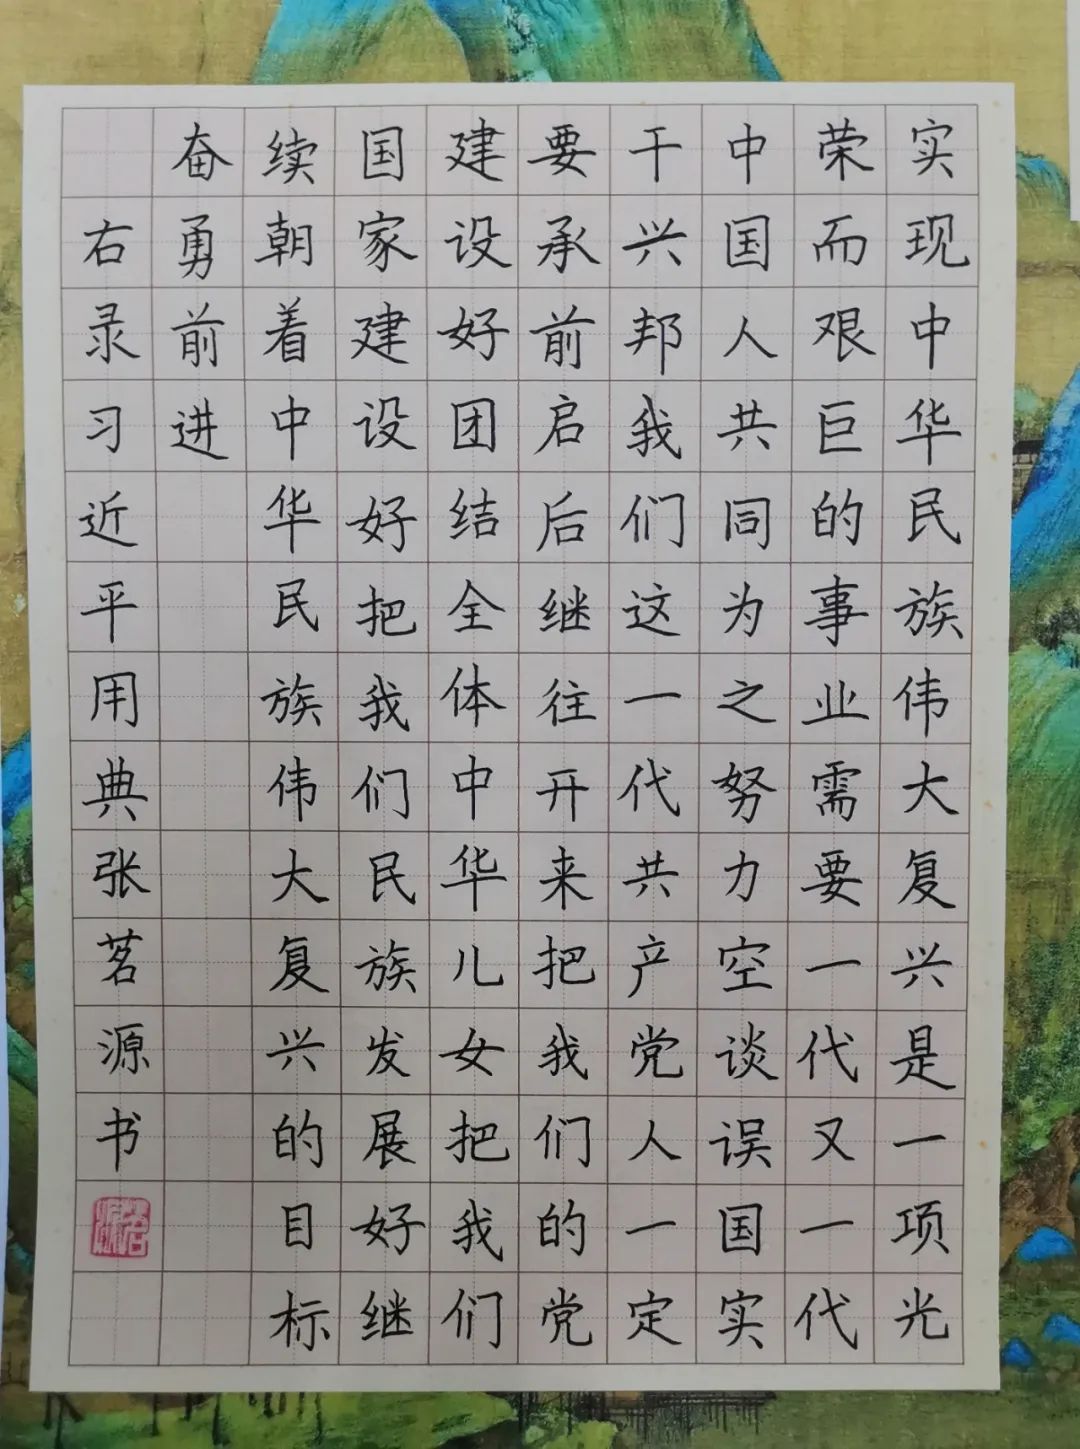 实现中华民族伟大复兴是一项光
荣而艰巨的事业需要一代又一代
中国人共同为之努力空谈误国实
干兴邦我们这一代共产党人一定
要承前启后继往开来把我们的党
建设好团结全体中华儿女把我们
国家建设好把我们民族发展好继
续朝着中华民族伟大复兴的目标
奋勇前进
右录习近平用典张茗源书